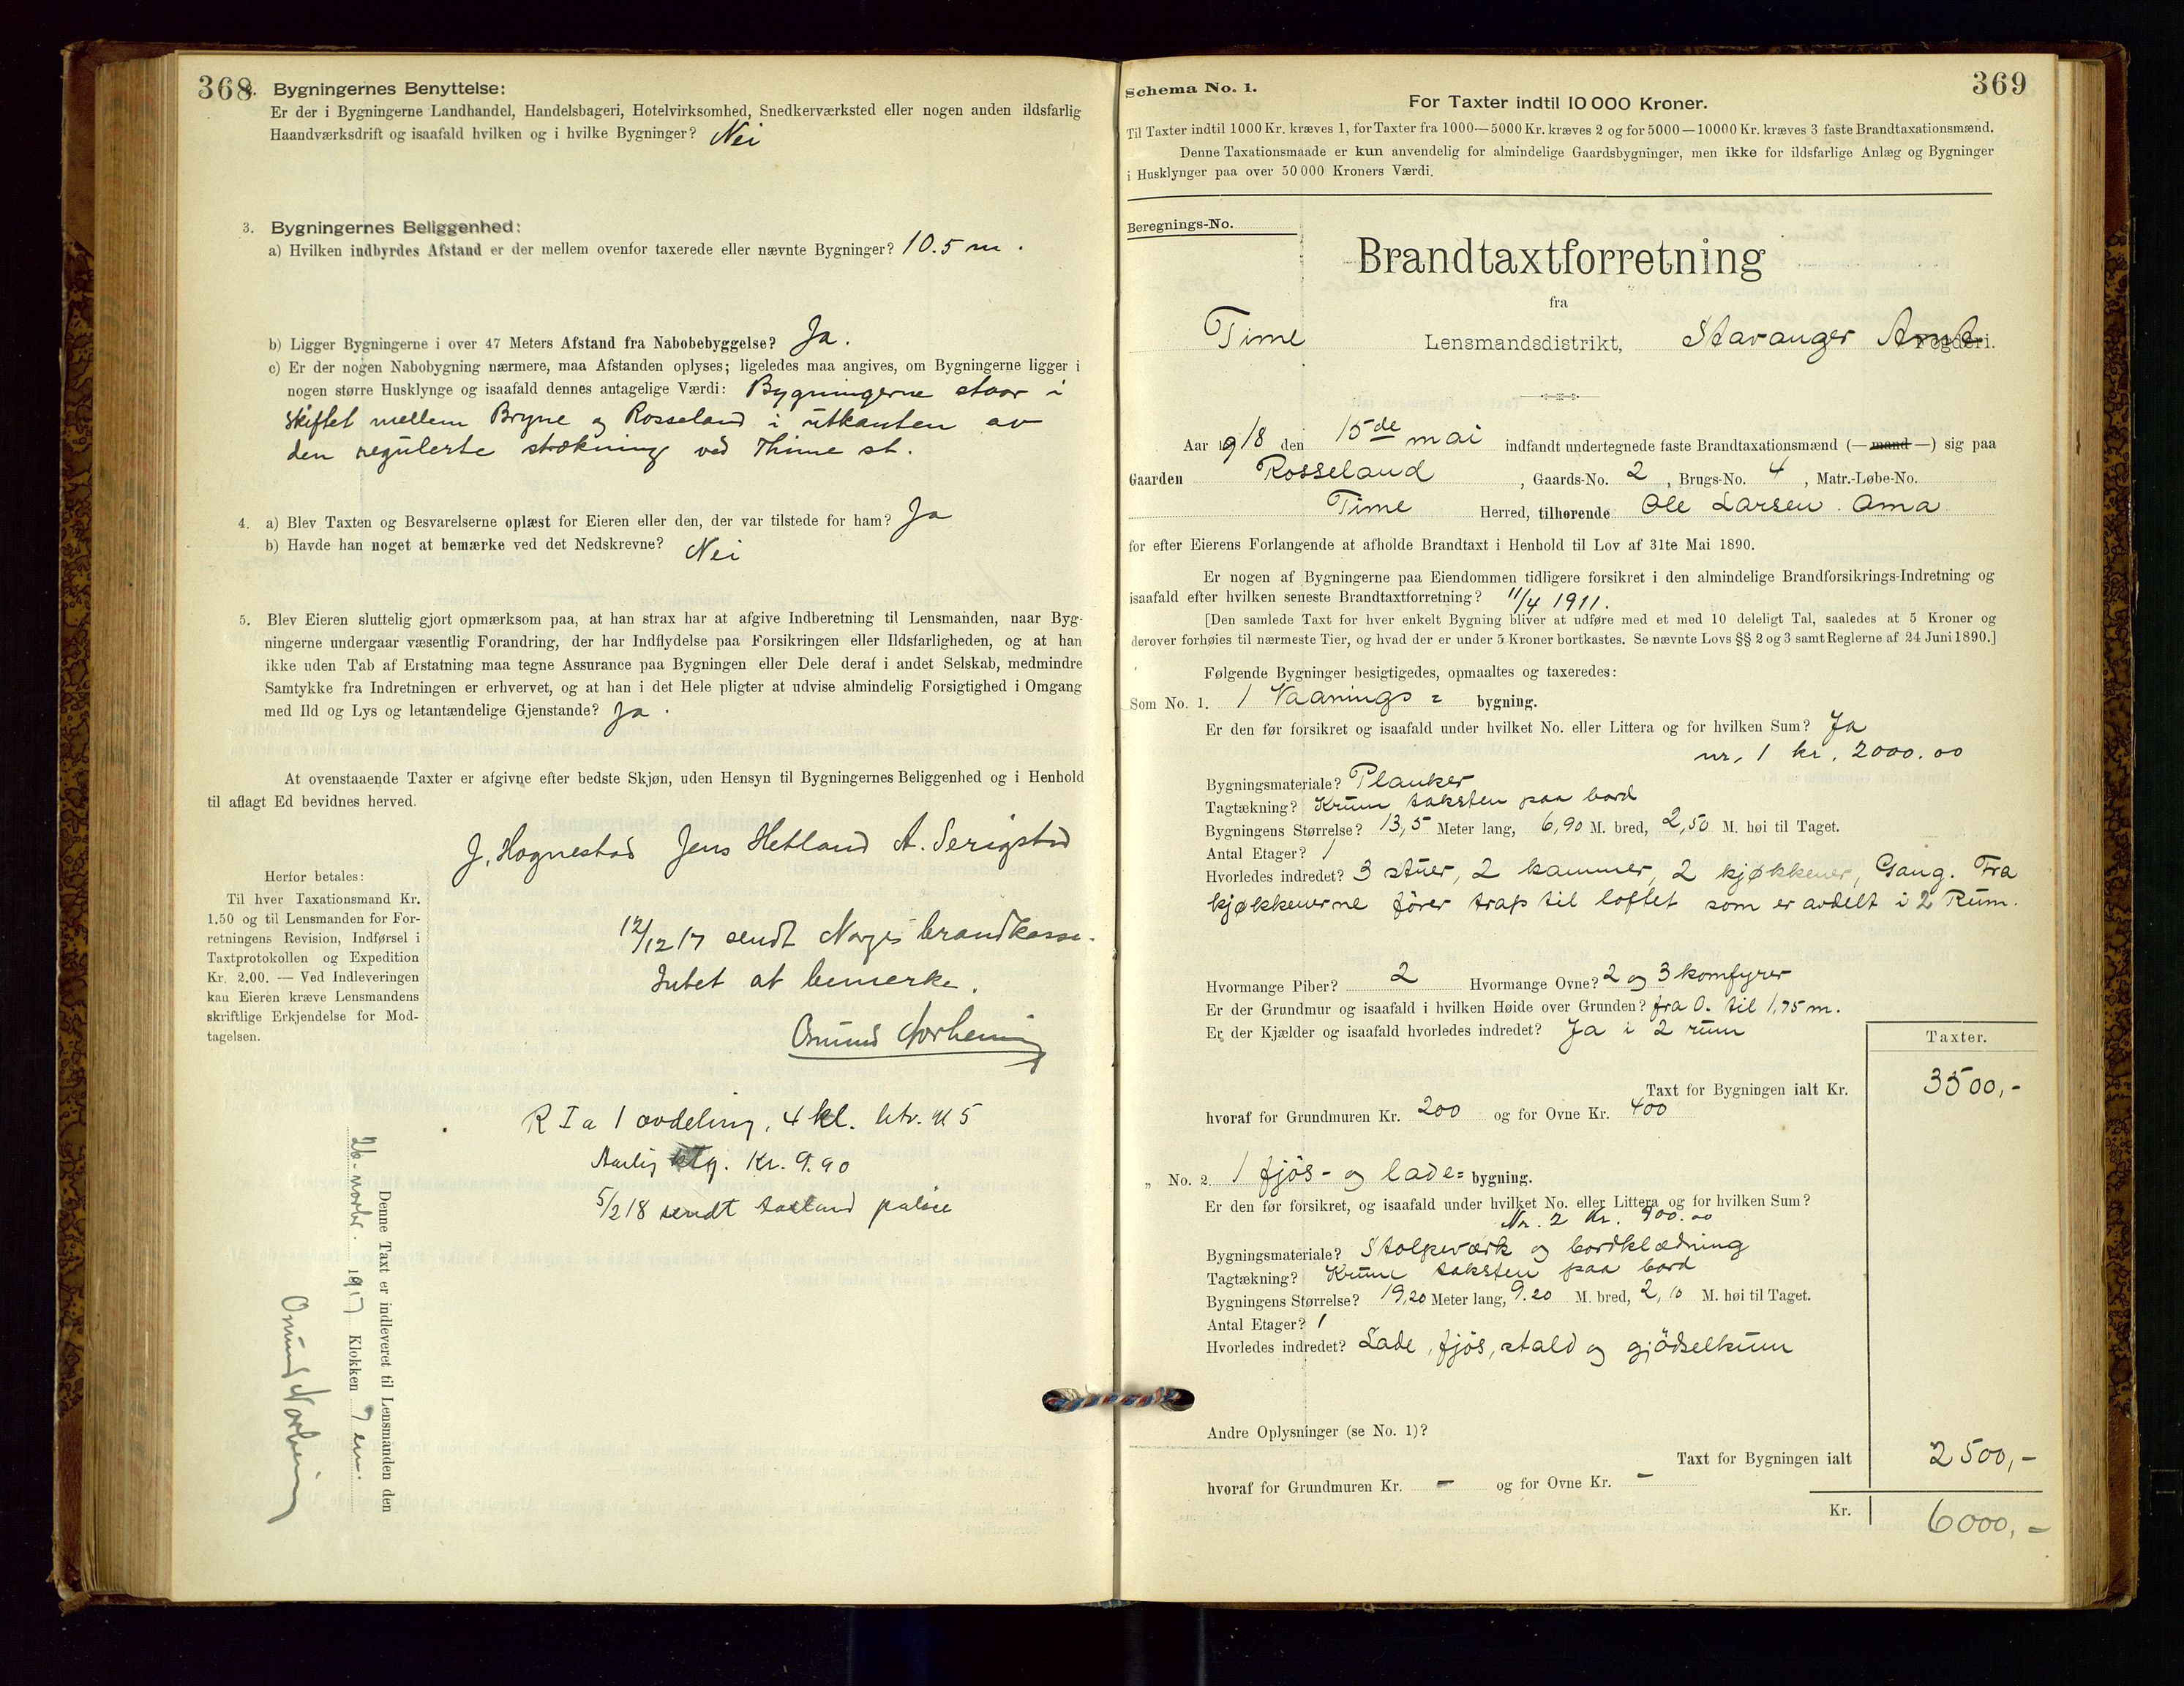 368
2. Bygningernes Benyttelse:
Er der i Bygningerne Landhandel, Handelsbageri, Hotelvirksomhed, Snedkerværksted eller nogen anden ildsfarlig
Haandværksdrift og isaafald hvilken og i hvilke Bygninger? Nei
3. Bygningernes Beliggenhed:
a) Hvilken indbyrdes Afstand er der mellem ovenfor taxerede eller nævnte Bygninger? 10.5 m.
b) Ligger Bygningerne i over 47 Meters Afstand fra Nabobebyggelse? Ja.
c) Er der nogen Nabobygning nærmere, maa Afstanden oplyses; ligeledes maa angives, om Bygningerne ligger i
nogen større Husklynge og isaafald dennes antagelige Værdi: Bygningerne staar i
skiftet mellem Bryne og Rosseland i utkanten av
den regulerte strækning ved Thime st.
4. a) Blev Taxten og Besvarelserne oplæst for Eieren eller den, der var tilstede for ham? Ja
b) Havde han noget at bemærke ved det Nedskrevne? Nei
5. Blev Eieren sluttelig gjort opmærksom paa, at han strax har at afgive Indberetning til Lensmanden, naar Byg-
ningerne undergaar væsentlig Forandring, der har Indflydelse paa Forsikringen eller Ildsfarligheden, og at han
ikke uden Tab af Erstatning maa tegne Assurance paa Bygningen eller Dele deraf i andet Selskab, medmindre
Samtykke fra Indretningen er erhvervet, og at han i det Hele pligter at udvise almindelig Forsigtighed i Omgang
med Ild og Lys og letantændelige Gjenstande? Ja.
At ovenstaaende Taxter er afgivne efter bedste Skjøn, uden Hensyn til Bygningernes Beliggenhed og i Henhold
til aflagt Ed bevidnes herved.
J. Hognestad Jens Hetland A. Serigstad
Herfor betales:
Til hver Taxationsmand Kr.
1.50 og til Lensmanden for For-
retningens Revision, Indførsel i
Taxtprotokollen og Expedition
Kr. 2.00. — Ved Indleveringen
kan Eieren kræve Lensmandens
skriftlige Erkjendelse for Mod-
tagelsen.
12/12 17 sendt Norges brandkasse.
Intet at bemerke.
Omund Norheim
R I a 1 avdeling, 4 kl. litr. U 5
Aarlig ktg. Kr. 9.90
5/2 18 sendt police
Denne Taxt er indleveret til Lensmanden den
26. novbr. 1917 Klokken 7 em.
Omund Norheim
369
Schema No. 1.
For Taxter indtil 10 000 Kroner.
Til Taxter indtil 1000 Kr. kræves 1, for Taxter fra 1000—5000 Kr. kræves 2 og for 5000—10000 Kr. kræves 3 faste Brandtaxationsmænd.
Denne Taxationsmaade er kun anvendelig for almindelige Gaardsbygninger, men ikke for ildsfarlige Anlæg og Bygninger
i Husklynger paa over 50 000 Kroners Værdi.
Beregnings-No.
Brandtaxtforretning
fra
Time Lensmandsdistrikt, Stavanger Amt Fogderi.
Aar 1918 den 15de mai indfandt undertegnede faste Brandtaxationsmænd (— mand —) sig paa
Gaarden Rosseland, Gaards-No. 2, Brugs-No. 4, Matr.-Løbe-No.
Time Herred, tilhørende Ole Larsen Ama
for efter Eierens Forlangende at afholde Brandtaxt i Henhold til Lov af 31te Mai 1890.
Er nogen af Bygningerne paa Eiendommen tidligere forsikret i den almindelige Brandforsikrings-Indretning og
isaafald efter hvilken seneste Brandtaxtforretning? 11/4 1911.
[Den samlede Taxt for hver enkelt Bygning bliver at udføre med et med 10 deleligt Tal, saaledes at 5 Kroner og
derover forhøies til nærmeste Tier, og hvad der er under 5 Kroner bortkastes. Se nævnte Lovs §§ 2 og 3 samt Reglerne af 24 Juni 1890.]
Følgende Bygninger besigtigedes, opmaaltes og taxeredes:
Som No. 1. 1 Vaanings = bygning.
Er den før forsikret og isaafald under hvilket No. eller Littera og for hvilken Sum? Ja
nr. 1 kr. 2000.00
Bygningsmateriale? Planker
Tagtækning? Krum taksten paa bord
Bygningens Størrelse? 13,5 Meter lang, 6,90 M. bred, 2,50 M. høi til Taget.
Antal Etager? 1
Hvorledes indredet? 3 stuer, 2 kammer, 2 kjøkkener, Gang. Fra
kjøkkenerne fører trap til loftet som er avdelt i 2 Rum.
Hvormange Piber? 2 Hvormange Ovne? 2 og 3 komfyrer
Er der Grundmur og isaafald i hvilken Høide over Grunden? fra 0. til 1,75 m.
Er der Kjælder og isaafald hvorledes indredet? Ja i 2 rum
Taxter.
Taxt for Bygningen ialt Kr. 3500,-
hvoraf for Grundmuren Kr. 200 og for Ovne Kr. 400
„ No. 2. 1 fjös- og lade= bygning.
Er den før forsikret, og isaafald under hvilket No. eller Littera og for hvilken Sum?
Nr. 2 Kr. 900.00
Bygningsmateriale? Stolpeværk og bordklædning
Tagtækning? Krum taksten paa bord
Bygningens Størrelse? 19,20 Meter lang, 9.20 M. bred, 2,10 M. høi til Taget.
Antal Etager? 1
Hvorledes indredet? Lade, fjös, stald og gjödselkum
Andre Oplysninger (se No. 1)?
Taxt for Bygningen ialt 2500,-
hvoraf for Grundmuren Kr. - og for Ovne Kr. -
Kr. 6000,-